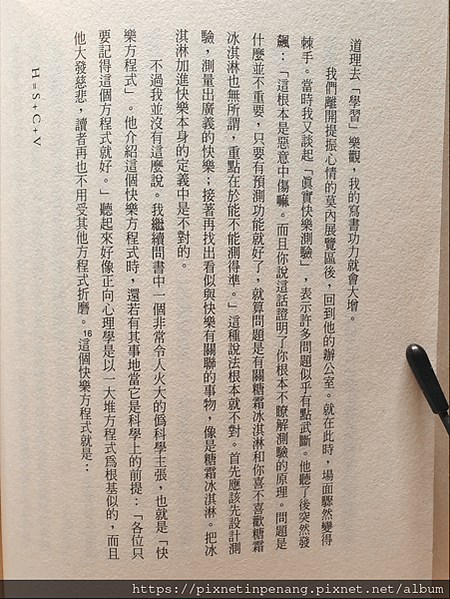 道理去「學習」樂觀，我的寫書功力就會大增。
我們離開提振心情的莫內展覽區後，回到他的辦公室。就在此時，場面驟然變得
棘手。當時我又談起「真實快樂測驗」，表示許多問題似乎有點武斷。他聽了後突然發
飆：「這根本是惡意中傷嘛。而且你說這話證明了你根本不瞭解測驗的原理。問題是
什麼並不重要，只要有預測功能就好了，就算問題是有關糖霜冰淇淋和你喜不喜歡糖霜
冰淇淋也無所謂，重點在於能不能測得準。」這種說法根本就不對。首先應該先設計測
驗，測量出廣義的快樂；接著再找出看似與快樂有關聯的事物，像是糖霜冰淇淋。把冰
淇淋加進快樂本身的定義中是不對的。
不過我並沒有這麼說。我繼續問書中一個非常令人火大的偽科學主張，也就是「快
樂方程式」。他介紹這個快樂方程式時，還若有其事地當它是科學上的前提：「各位只
要記得這個方程式就好。」聽起來好像正向心理學是以一大堆方程式為根基似的，而且
他大發慈悲，讀者再也不用受其他方程式折磨。16這個快樂方程式就是：
H=S+C+V
https://pixnetinpenang.pixnet.net/album